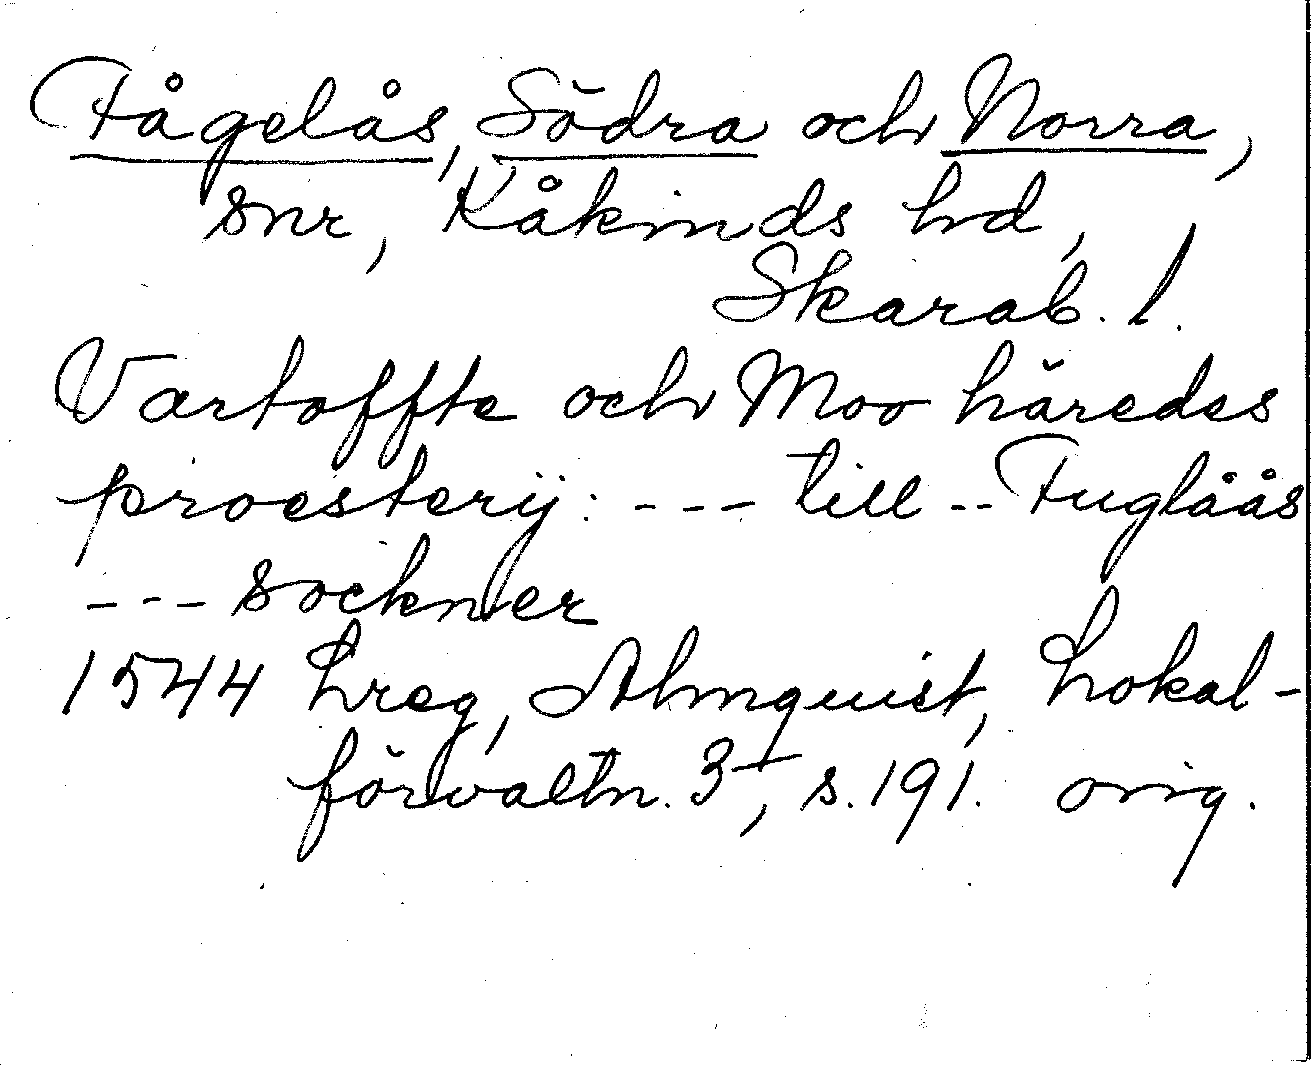 Fågelås, Södra och Norra,
snr, Kåkinds hd,
Skarab. l.
Vartoffte och Moo häredes
proesterij: --- till -- Fuglåås
--- sockner
1544 Lreg, Almquist, Lokal-
förvaltn. 3, s. 191. orig.